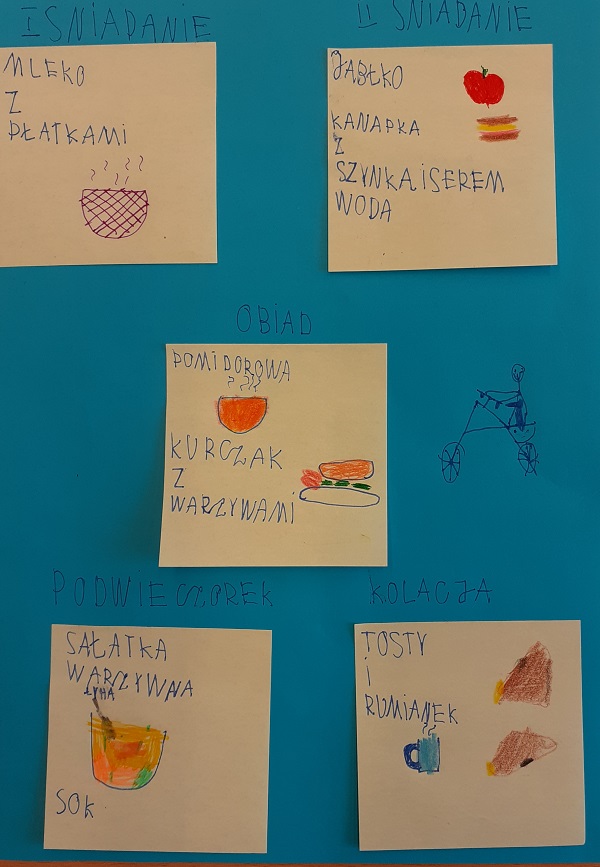 I SNIADANIE
MLEKO
Z
PŁATKAMI
II SNIADANIE
JABŁKO
KANAPKA
Z
SZYNKĄ I SEREM
WODA
OBIAD
POMIDOROWA
KURCZAK
Z
WARZYWAMI
PODWIECZOREK
SAŁATKA
WARZYWNA
ŁYHA
SOK
KOLACJA
TOSTY
I
RUMIANEK